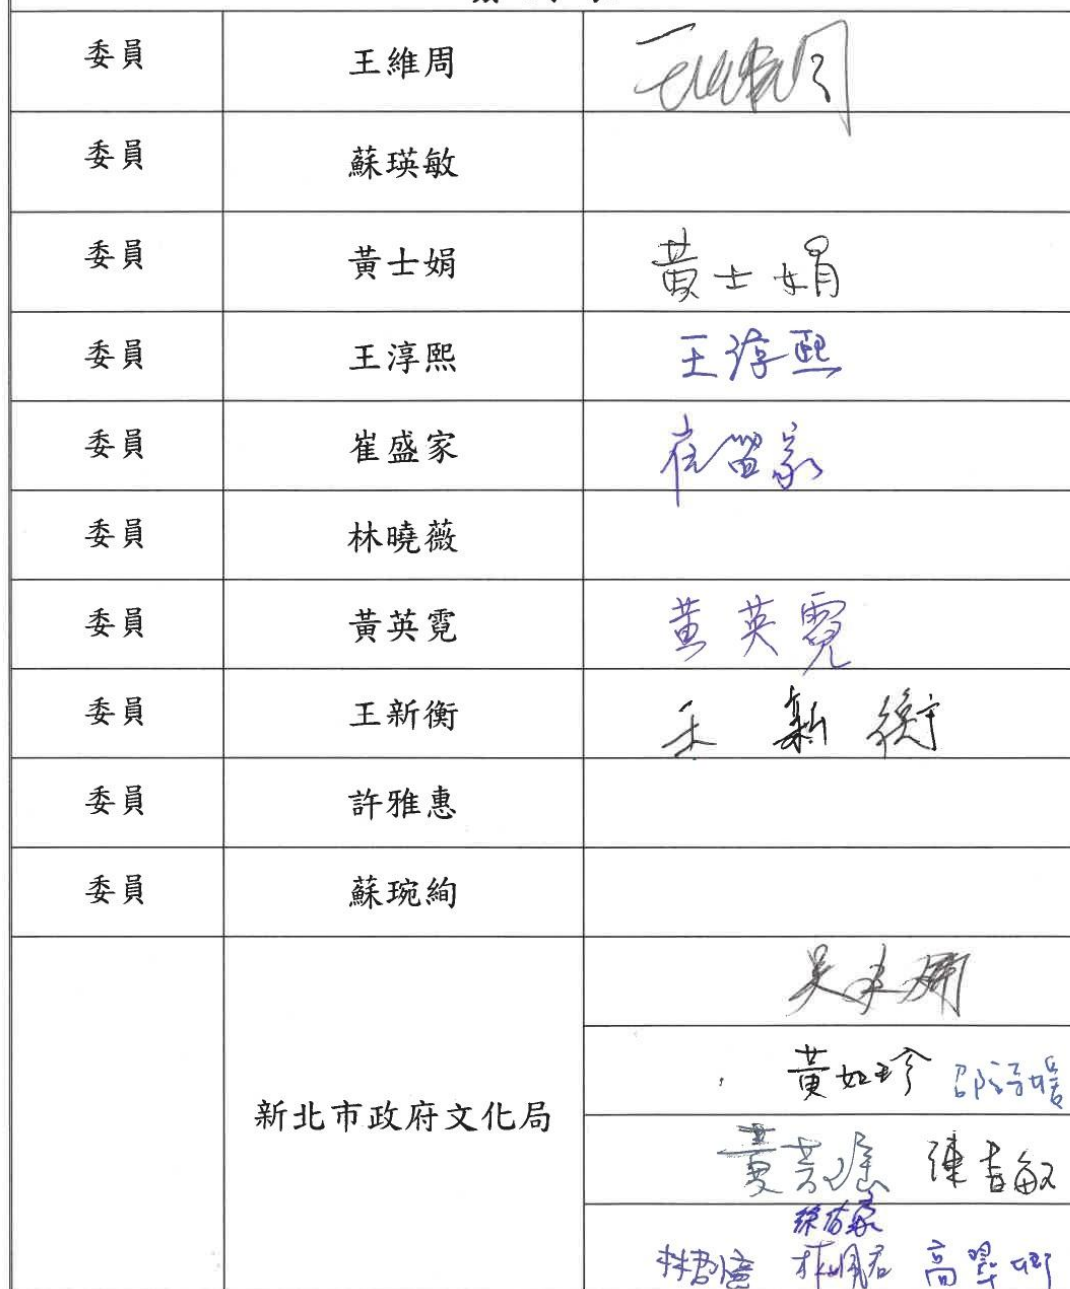 委員 王維周 王維周
委員 蘇瑛敏
委員 黃士娟 黃士娟
委員 王淳熙 王淳熙
委員 崔盛家 崔盛家
委員 林曉薇
委員 黃英霓 黃英霓
委員 王新衡 王新衡
委員 許雅惠
委員 蘇琬絢
新北市政府文化局
黃如珍
陳吉敏